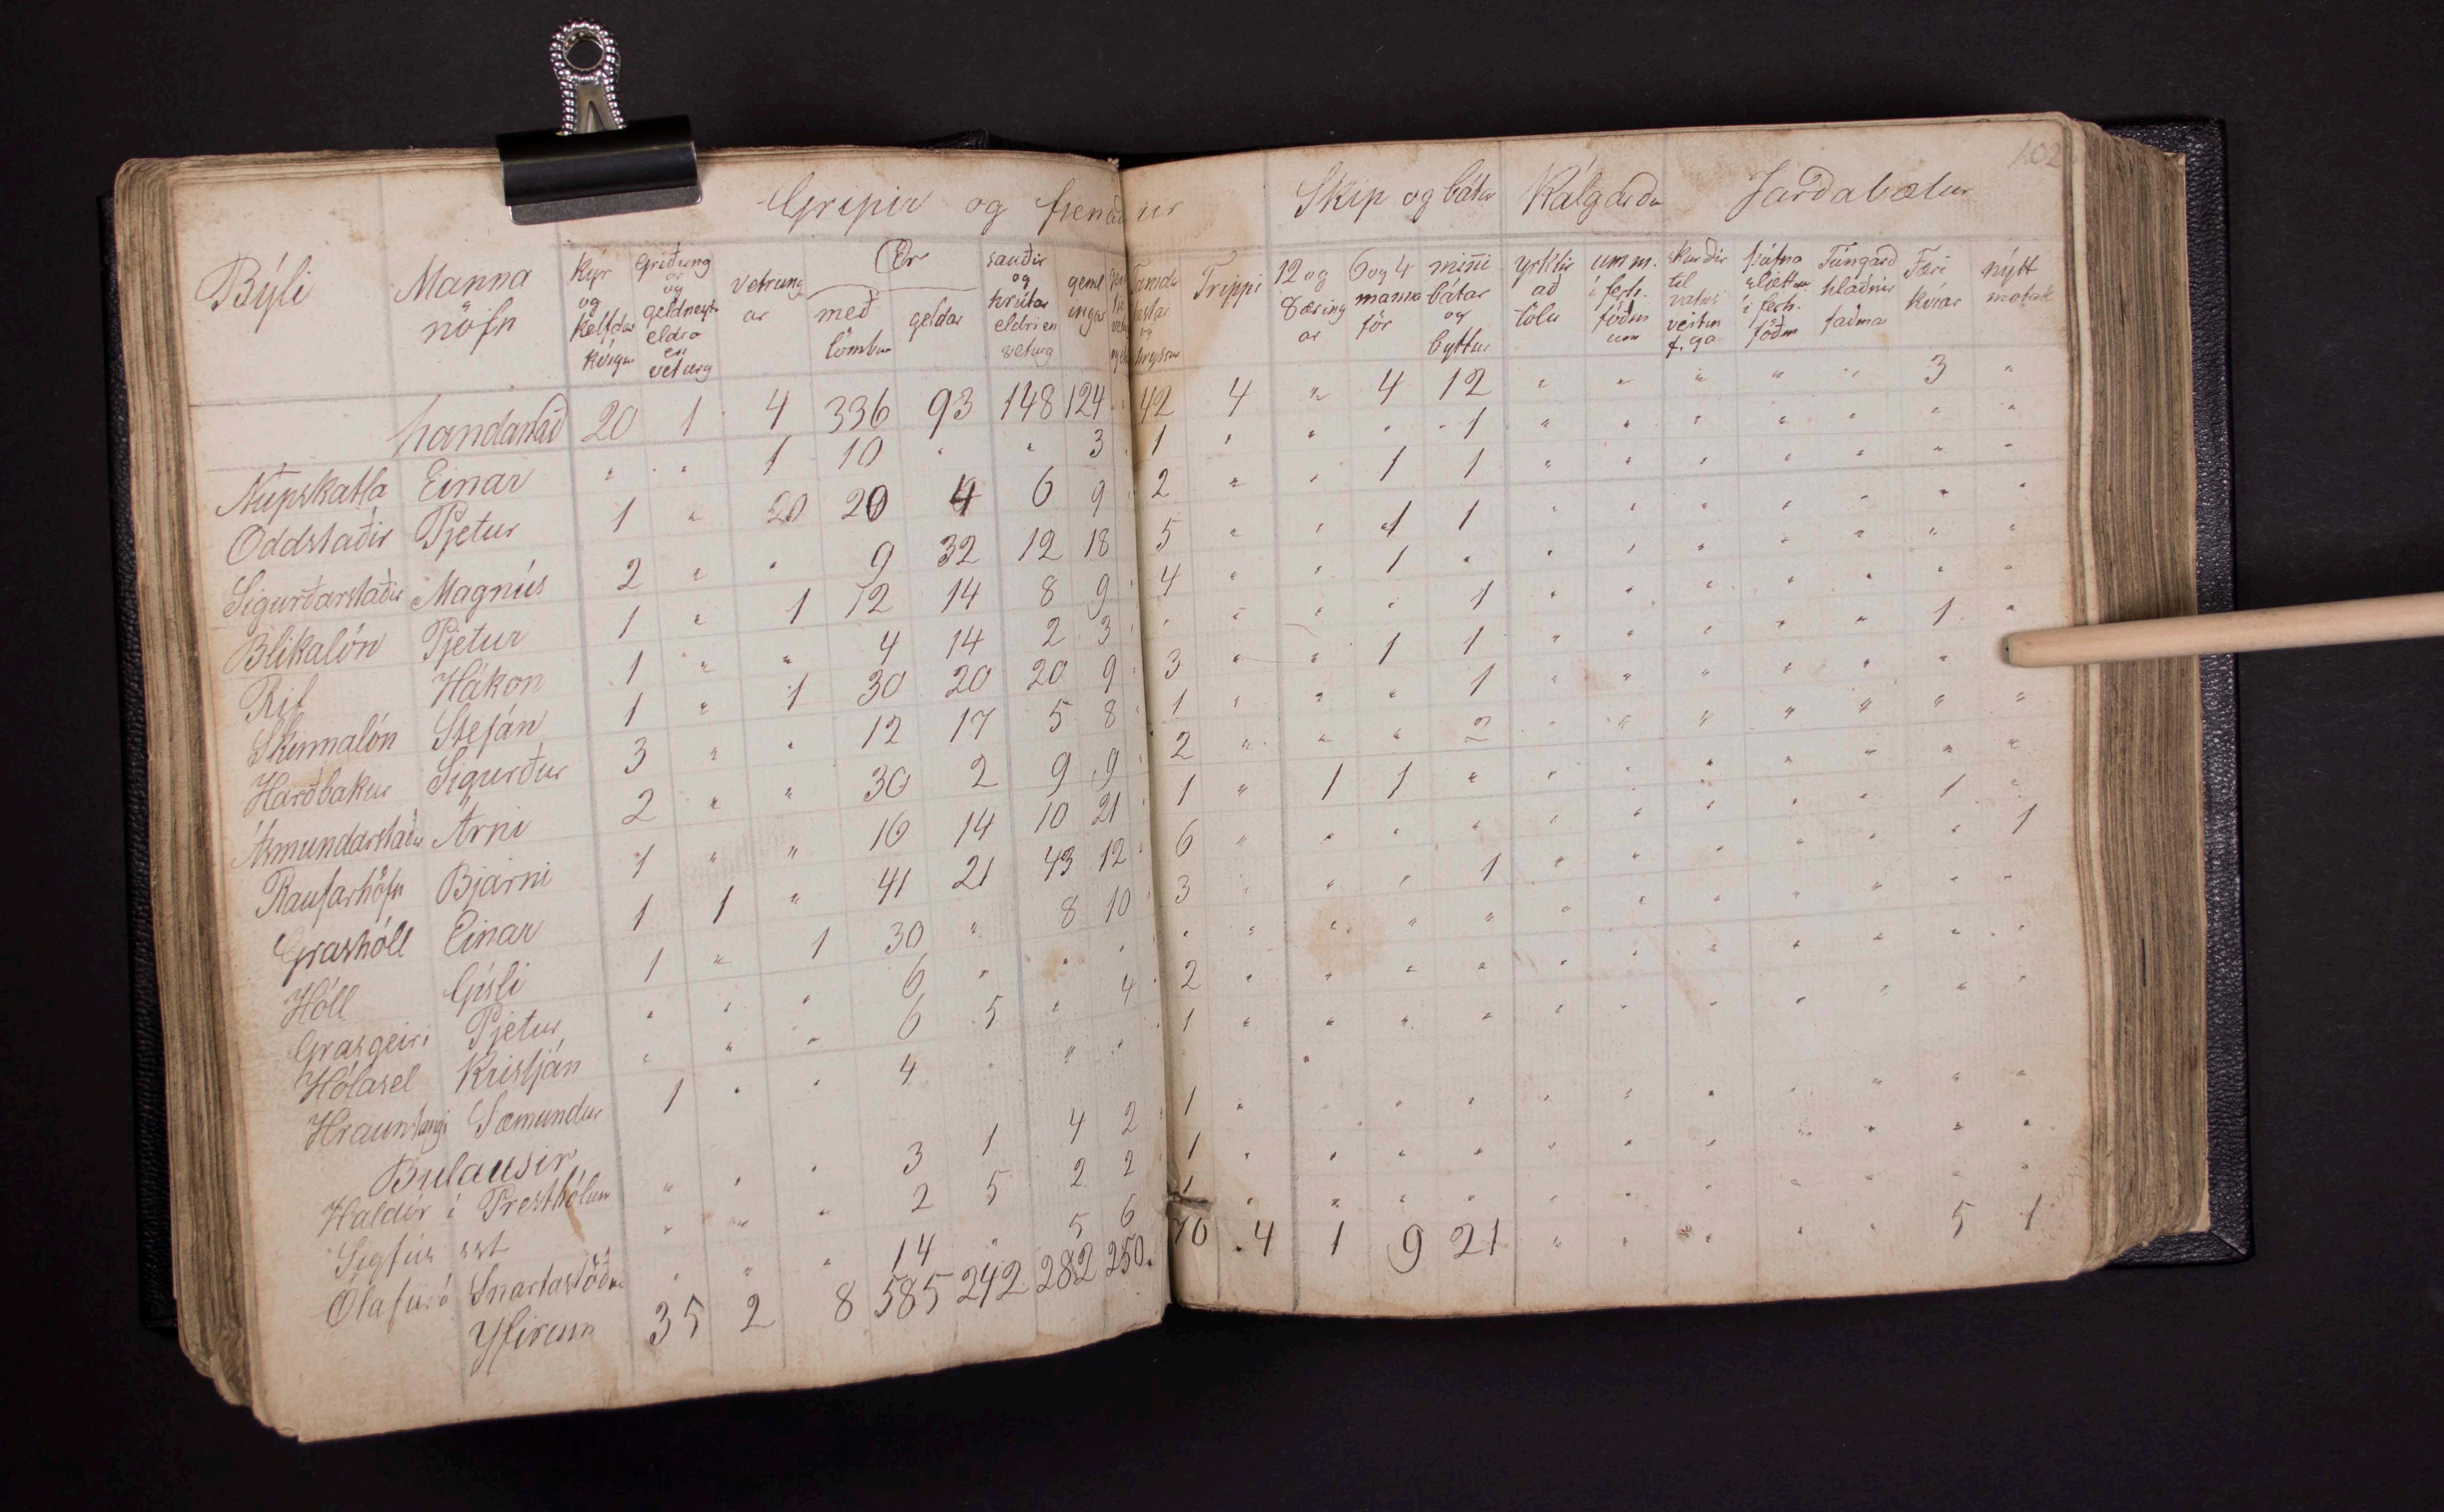 102
Gripir og fjenaður Skip og bátar Kálgarða Jarðabætur
Býli Manna nöfn kýr og kelfdar kvígur griðung ar og geldneyti eldra en veturg vetrung ar Ær með lömbum geldar sauðir og hrútar eldri en veturg geml ingar Tamdir hestar og hryssur Trippi 12 og 8 æring ar 6 og 4 manna för minni bátar og byttur yrktir að tölu umm. í ferh. föðm um skurðir til vatns veitin f. ga þúfna sljettun í ferh. föðm Túngarð hlaðnir faðma Færi kvíar nýtt mótak
handarað 20 1 4 336 93 148 124 " 42 4 " 4 12 " " " " " 3 "
Núpskatla Einar " " 1 10 " " 3 " 1 " " " 1 " " " " " " "
Oddstaðir Pjetur 1 " 20 20 4 6 9 " 2 " " 1 1 " " " " " " "
Sigurðarstaðir Magnús 2 " " 9 32 12 18 " 5 " " 1 1 " " " " " " "
Blikalón Pjetur 1 " 1 12 14 8 9 " 4 " " 1 " " " " " " " "
Rif Hákon 1 " " 4 14 2 3 " " " " " 1 " " " " " " "
Skinnalón Stefán 1 " 1 30 20 20 9 " 3 " " 1 1 " " " " " 1 "
Harðbakur Sigurður 3 " " 12 17 5 8 " 1 " " " 1 " " " " " " "
Ásmundarstaðir Árni 2 " " 30 2 9 9 " 2 " " " 2 " " " " " " "
Raufarhöfn Bjarni 1 " " 16 14 10 21 " 1 " 1 1 " " " " " " " "
Grashóll Einar 1 1 " 41 21 43 12 " 6 " " " " " " " " " 1 "
Hóll Gísli 1 " 1 30 " 8 10 " 3 " " " 1 " " " " " " 1
Grasgeiri Pjetur " " " 6 " " " " " " " " " " " " " " " "
Hólasel Kristján " " " 6 5 " 4 " 2 " " " " " " " " " " "
Hrauntángi Sæmundur 1 " " 4 " " " " 1 " " " " " " " " " " "
Bulausir
Haldór í Presthólum " " " 3 1 4 2 " 1 " " " " " " " " " " "
Sigfús sst " " " 2 5 2 2 " 1 " " " " " " " " " " "
Ólafur á Snartastöðum " " " 14 " 5 6 " 1 " " " " " " " " " " "
Yfirum 35 2 8 585 242 282 250 " 76 4 1 9 21 " " " " " 5 1